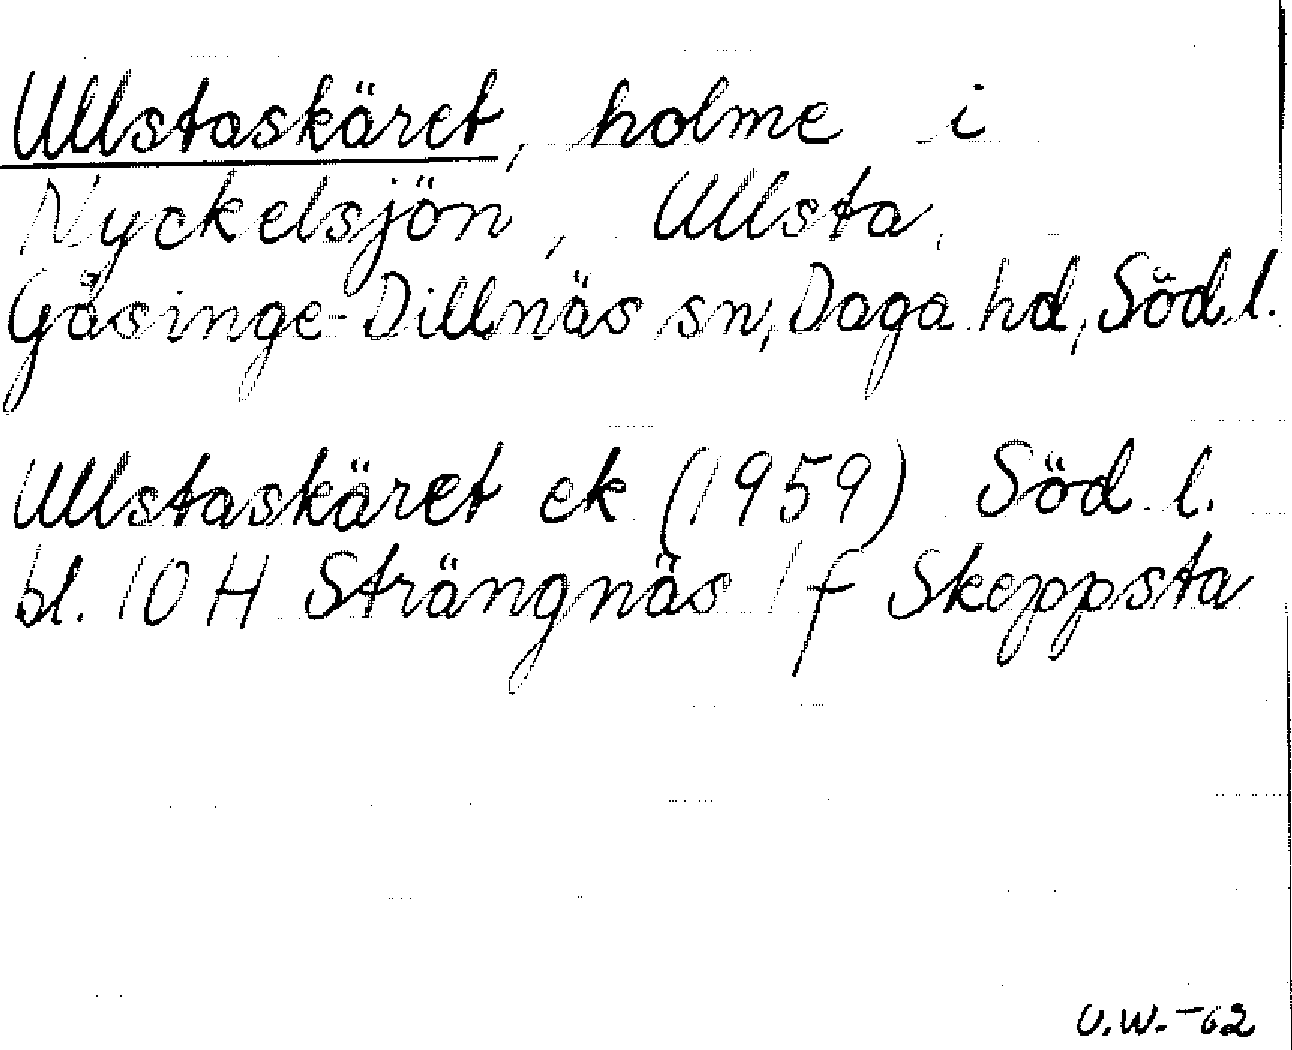 Ullstaskäret, holme i
Nyckelsjön, Ullsta,
Gåsinge-Dillnäs sn, Daga hd, Söd.l.
Ullstaskäret ek (1959) Söd. l.
bl. 10 H Strängnäs 1 f Skeppsta
U.W.-62